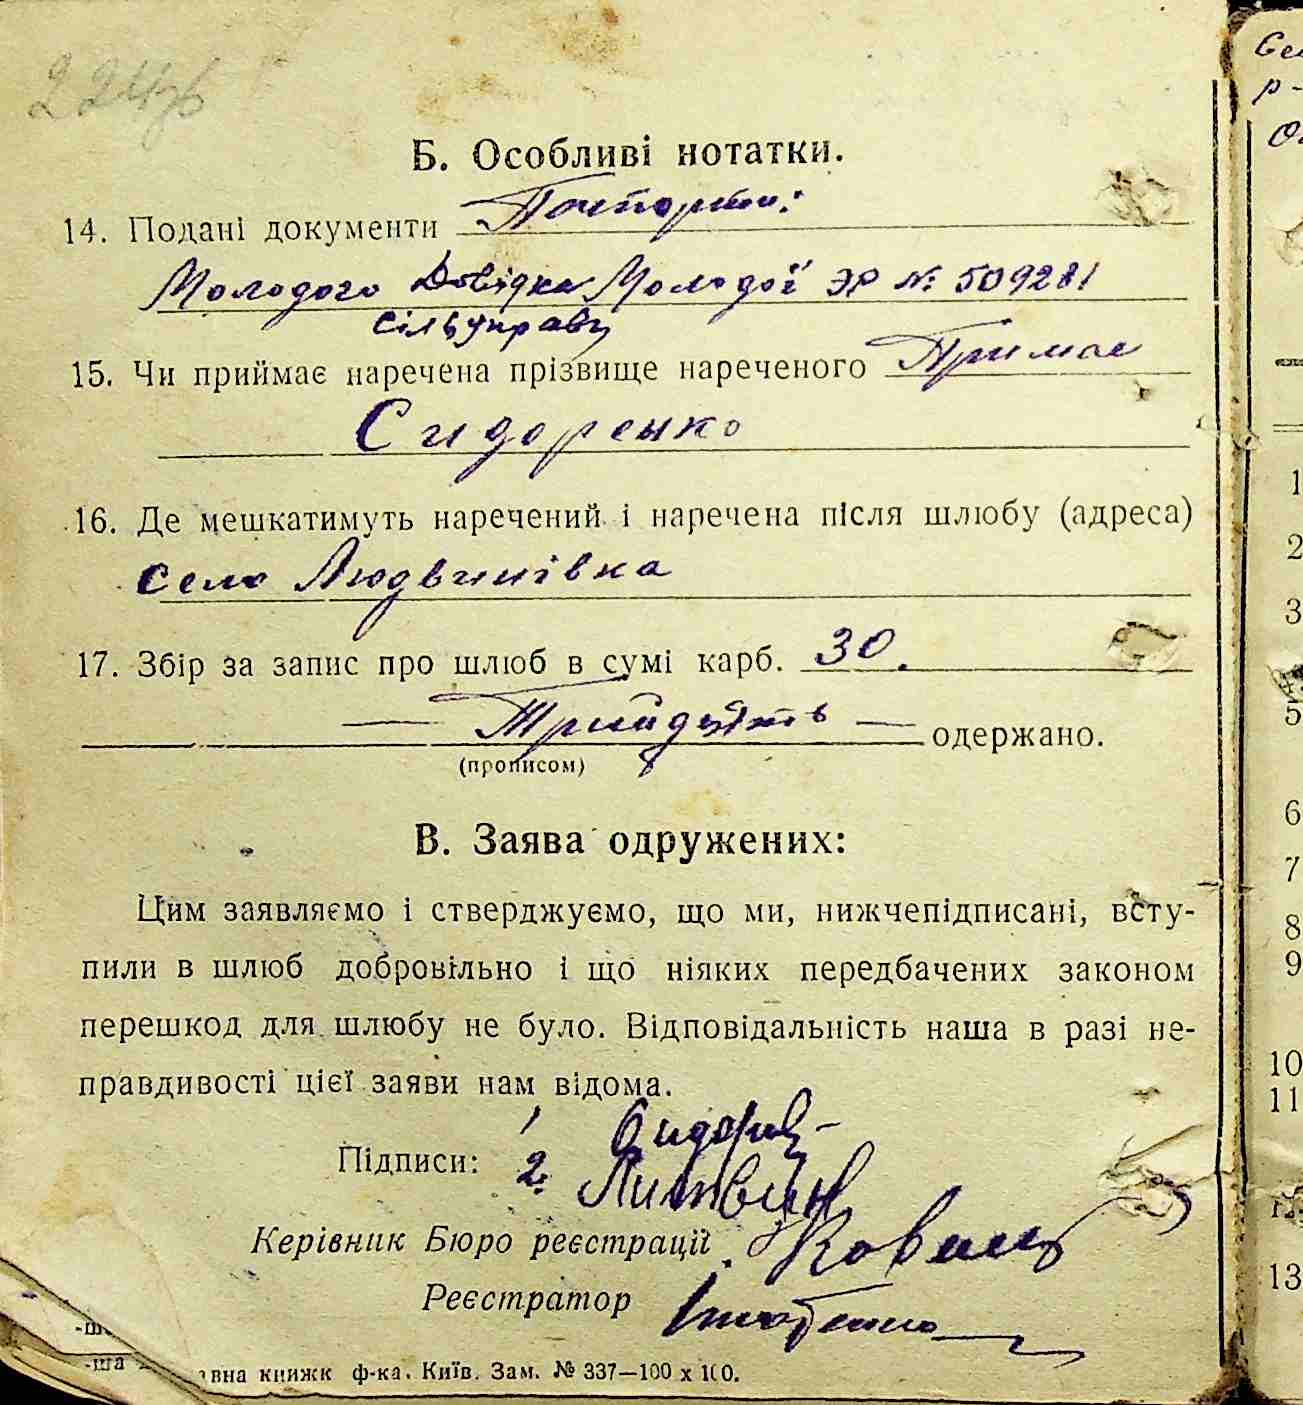 224зв
Б. Особливі нотатки.
14. Подані документи Паспорти:
Молодого Довідка Молодої ЭР № 509281
сільуправи
15. Чи приймає наречена прізвище нареченого Приймає
Сидоренко
16. Де мешкатимуть наречений і наречена після шлюбу (адреса)
село Людвинівка
17. Збір за запис про шлюб в сумі карб. 30.
— Трийдцять — одержано.
(прописом)
В. Заява одружених:
Цим заявляємо і стверджуємо, що ми, нижчепідписані, всту-
пили в шлюб добровільно і що ніяких передбачених законом
перешкод для шлюбу не було. Відповідальність наша в разі не-
правдивості цієї заяви нам відома.
1
Підписи: 2. Литвин
Керівник Бюро реєстрації
Реєстратор
вна книжк ф-ка. Київ. Зам. № 337—100 х 100.
р-
1
2
3
5
6
7
8
9
10
11
13